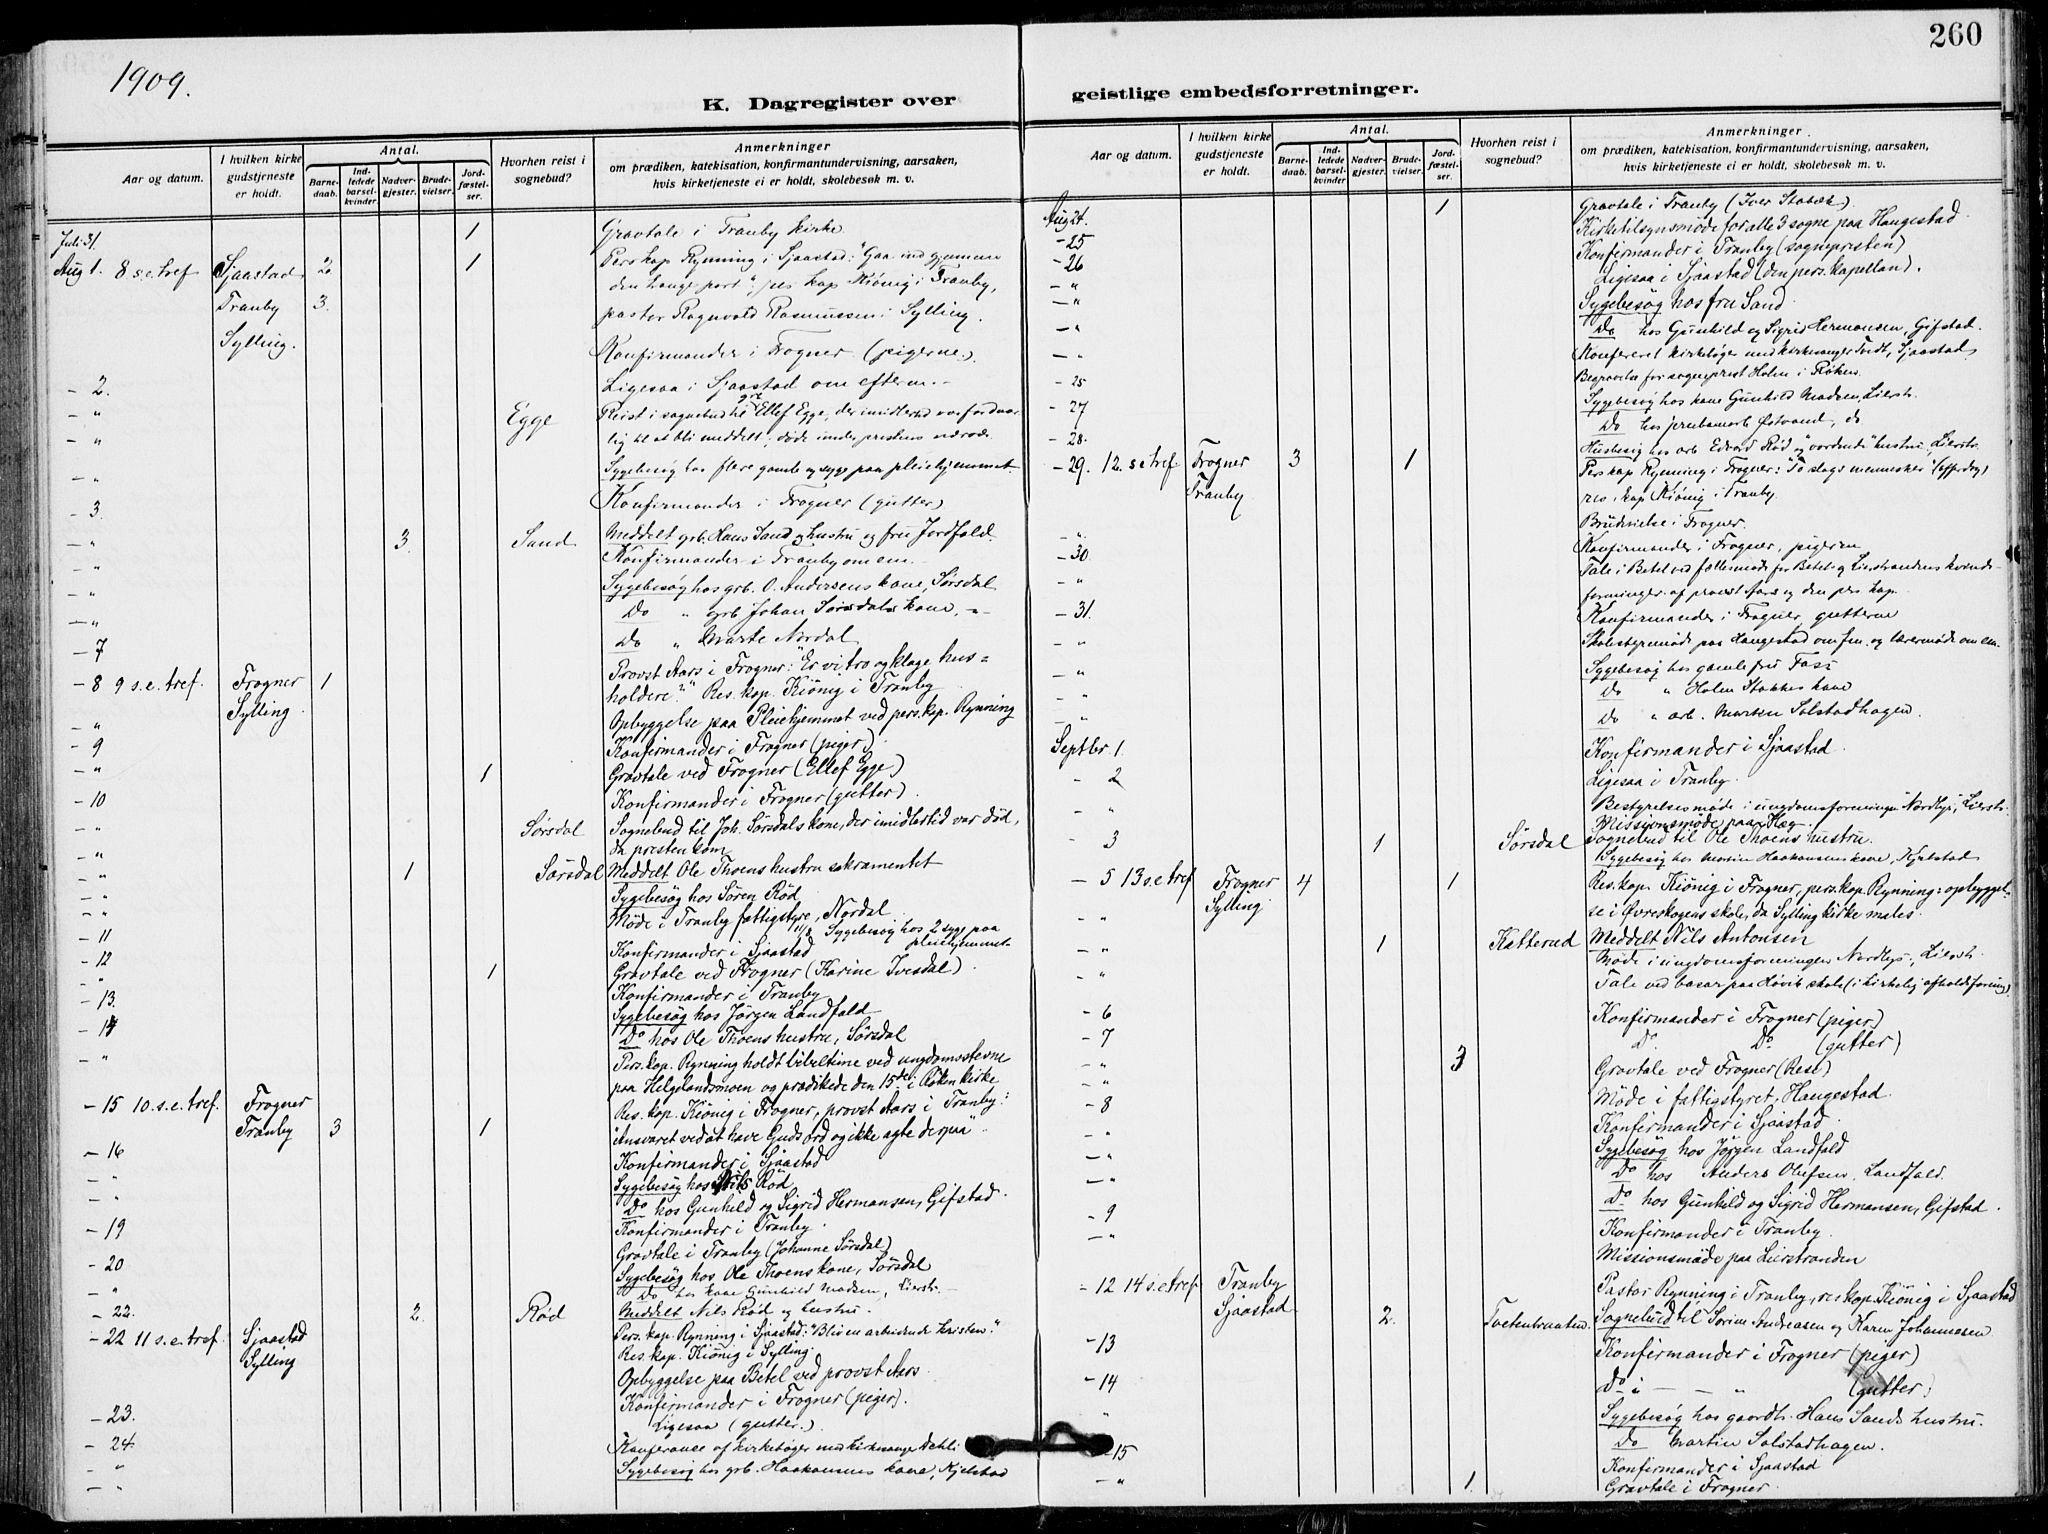 260
1909.
K. Dagregister over geistlige embedsforretninger.
Aar og datum.
I hvilken kirke gudstjeneste er holdt.
Antal.
Barnedaab.
Indledede barselkvinder.
Nadvergjester.
Brudevielser.
Jordfæstelser.
Hvorhen reist i sognebud?
Anmerkninger
om prædiken, katekisation, konfirmantundervisning, aarsaken,
hvis kirketjeneste ei er holdt, skolebesøk m. v.
Juli 31. 1 Gravtale i Tranby kirke
Aug 1. 8 s.e.tref Sjaastad 2. 1 Pers kap Rynning i Sjaastad: "Gaa ind gjennem
Tranby 3. den trange port", res kap Kiönig i Tranby,
Sylling. pastor Ragnvald Rasmussen i Sylling.
Konfirmander i Frogner (pigerne).
- 2. Ligesaa i Sjaastad om efterm. -
- " Egge Reist i sognebud til Ellef Egge, der imidlertid var for daar
- " lig til at bli meddelt, døde under prestens nærvær.
- " Sygebesøg hos flere gamle og syge paa pleiehjemmet.
- 3. Konfirmander i Frogner (gutter)
- " 3. Sand Meddelt grb. Hans Sand og hustru og fru Jordfald.
- " Konfirmander i Tranby om em. -
- " Sygebesøg hos grb. O. Andersens kone, Sørsdal
- " Do " grb Johan Sørsdals kone, - " -
- 7 Do " Marte Nordal
- 8 9 s.e.tref. Frogner 1 Provst Aars i Frogner: "Er vi tro og kloge hus=
Sylling holdere?" Res. kap. Kiönig i Tranby
- " Opbyggelse paa Pleiehjemmet ved pers. kap. Rynning
- 9 Konfirmander i Frogner (piger)
- " 1 Gravtale ved Frogner (Ellef Egge)
- 10 Konfirmander i Frogner (gutter).
- " Sørsdal Sognebud til Joh. Sørsdals kone, der imidlertid var död,
da presten kom
- " 1 Sørsdal Meddelt Ole Thoens hustru sakramentet
- " Sygebesøg hos Sören Röd
- " Möde i Tranby fattigstyre, Nordal
- 11 Konfirmander i Sjaastad 11/8 Sygebesøg hos 2 syge paa pleiehjemmet
- 12 1 Gravtale ved Frogner (Karine Ivesdal)
- " Konfirmander i Tranby
- 13. Sygebesøg hos Jörgen Landfald
- 14 Do hos Ole Thoens hustru, Sørsdal
- " Pers. kap. Rynning holdt bibeltime ved ungdomsstevne
paa Helgelandsmoen og prædikede den 15de i Röken kirke
- 15 10. s.e.tref. Frogner Res. kap. Kiönig i Frogner, provst Aars i Tranby:
Tranby 3 1 "Ansvaret ved at have Guds ord og ikke agte derpaa".
- 16 Konfirmander i Sjaastad
- " Sygebesøg hos Nils Röd
- " Do hos Gunhild og Sigrid Hermansen, Gifstad.
- 19 Konfirmander i Tranby
Gravtale i Tranby (Johanne Sørsdal)
- 20 Sygebesøg hos Ole Thoens kone, Sørsdal
- " Do hos kone Gunhild Madsen, Lierstr. -
- 22. 2. Rød Meddelt Nils Röd og hustru.
- 22 11 s.e.tref. Sjaastad Pers. kap. Rynning i Sjaastad: "Bli en arbeidende kristen".
Sylling Res. kap. Kiönig i Sylling.
Opbyggelse paa Betel ved provst Aars
- 23. Konfirmander i Frogner (piger).
Ligesaa (gutter.)
- 24 Konferance af kirkebøger med kirkesanger Dehli
- " Sygebesøg hos grb. Haakonsens kone, Kjelstad
Aar og datum.
I hvilken kirke gudstjeneste er holdt.
Antal.
Barnedaab.
Indledede barselkvinder.
Nadvergjester.
Brudevielser.
Jordfæstelser.
Hvorhen reist i sognebud?
Anmerkninger
om prædiken, katekisation, konfirmantundervisning, aarsaken,
hvis kirketjeneste ei er holdt, skolebesøk m. v.
Aug 24. 1 Gravtale i Tranby (Iver Stabæk)
- 25 Kirketilsynsmøde for alle 3 sogne paa Haugestad
- 26 Konfirmander i Tranby (sognepresten)
- " Ligesaa i Sjaastad (den pers. kapellan).
- " Sygebesøg hos fru Sand
- " Do hos Gunhild og Sigrid Hermansen, Gifstad.
- " Konfereret kirkebøger med kirkesanger Tvedt, Sjaastad
- 25 Begravelse for sogneprest Holm i Røken
- 27 Sygebesøg hos kone Gunhild Madsen, Lierstr.
Do hos Østvand, do
- 28. Husbesøg hos arb Edvard Rød og hustru, Lierstr.
- 29. 12. s e tref Frogner 3 1 Pers kap Rynning i Frogner: "To slags mennesker"
Tranby. res. kap Kiönig i Tranby
Brudevielse i Frogner.
- " Konfirmander i Frogner, pigerne
- 30 Tale i Betel ved fællesmøde for Betel og Lierstrandens kvinde-
- " foreninger af provst Aars og den pers kap.
- 31. Konfirmander i Frogner, gutterne
- " Skolestyremøde paa Haugestad om fm. og lærermøde om em.
- " Sygebesøg hos gamle fru Foss
- " Do " Holm Stokkes kone
- " Do " arb. Morten Solstadhagen.
Septbr 1. Konfirmander i Sjaastad
- 2 Ligesaa i Tranby.
- " Bestyrelsesmøde i ungdomsforeningen "Nordlys", Lierstr.
Missionsmøde paa Hæg
- 3 1 Sørsdal Sognebud til Ole Thoens hustru.
Sygebesøg hos Martin Haakonsens kone, Kjelstad
- 5 13 s.e tref Frogner 4 1 Res. kap. Kiönig i Frogner, pers. kap. Rynning: opbyggel-
- " Sylling se i Øvreskogens skole, da Sylling kirke males.
- " 1 Katterud Meddelt Nils Antonsen
Møde i ungdomsforeningen Nordlys, Lierstr.
- " Tale ved basar paa Høvik skole (i kirkelig afholdsforening)
- 6 Konfirmander i Frogner (piger)
- 7 Do. Do (gutter)
- " 3 Gravtale ved Frogner (Rese)
- " Möde i fattigstyret, Haugestad.
- 8 Konfirmander i Sjaastad
- " Sygebesøg hos Jörgen Landfald
- " Do hos Anders Olufsen, Landfald.
- " Do hos Gunhild og Sigrid Hermansen, Gifstad.
- 9 Konfirmander i Tranby.
- " Missionsmøde paa Lierstranden
- 12 14 s.e tref Tranby Pastor Rynning i Tranby, res kap. Kiönig i Sjaastad
Sjaastad 2. Tveitenbraaten. Sognebud til Sørine Andreasen og Karen Johannesen
- 13 Konfirmander i Frogner (piger)
- 14 Do i - - " (gutter)
" Sygebesøg hos gaardbr. Hans Sands hustru.
Do Martin Solstadhagen.
- 15 Konfirmander i Sjaastad
- " 1. Gravtale i Frogner